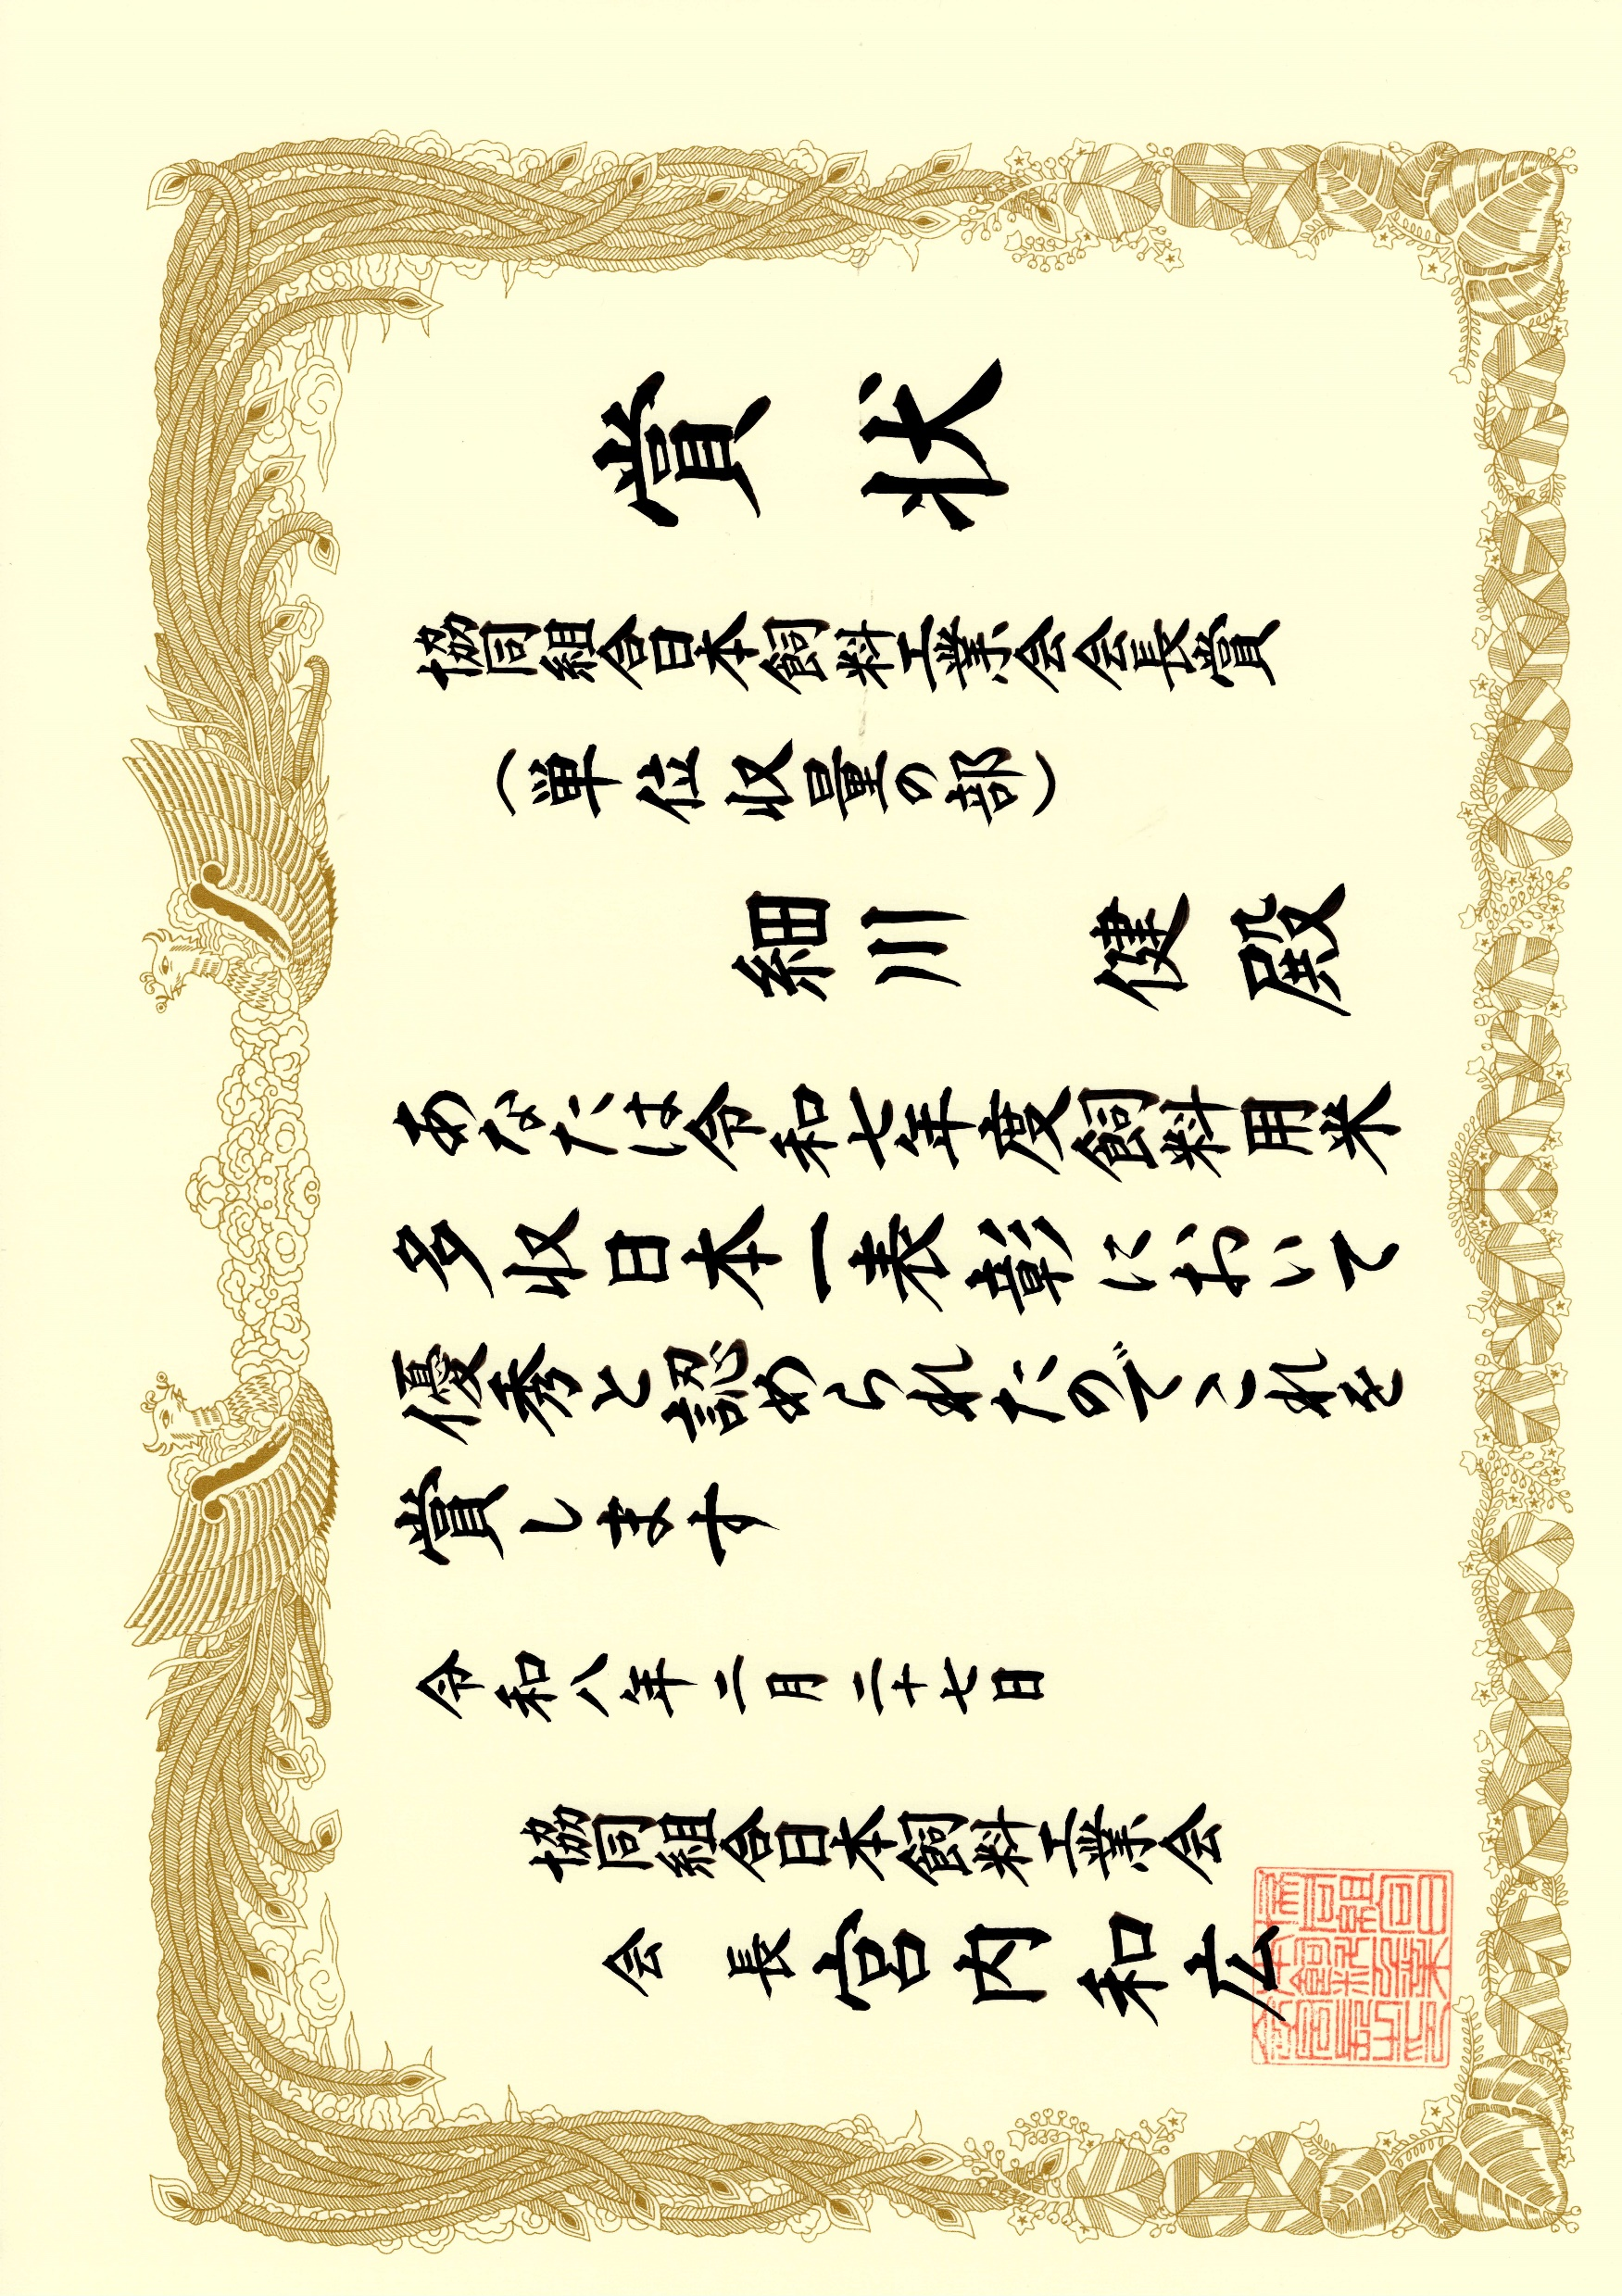 賞状
協同組合日本飼料工業会会長賞
（単位収量の部）
細川 健 殿
あなたは令和七年度飼料用米
多収日本一表彰において
優秀と認められたのでこれを
賞します
令和八年二月二十七日
協同組合日本飼料工業会
会長 宮内和広